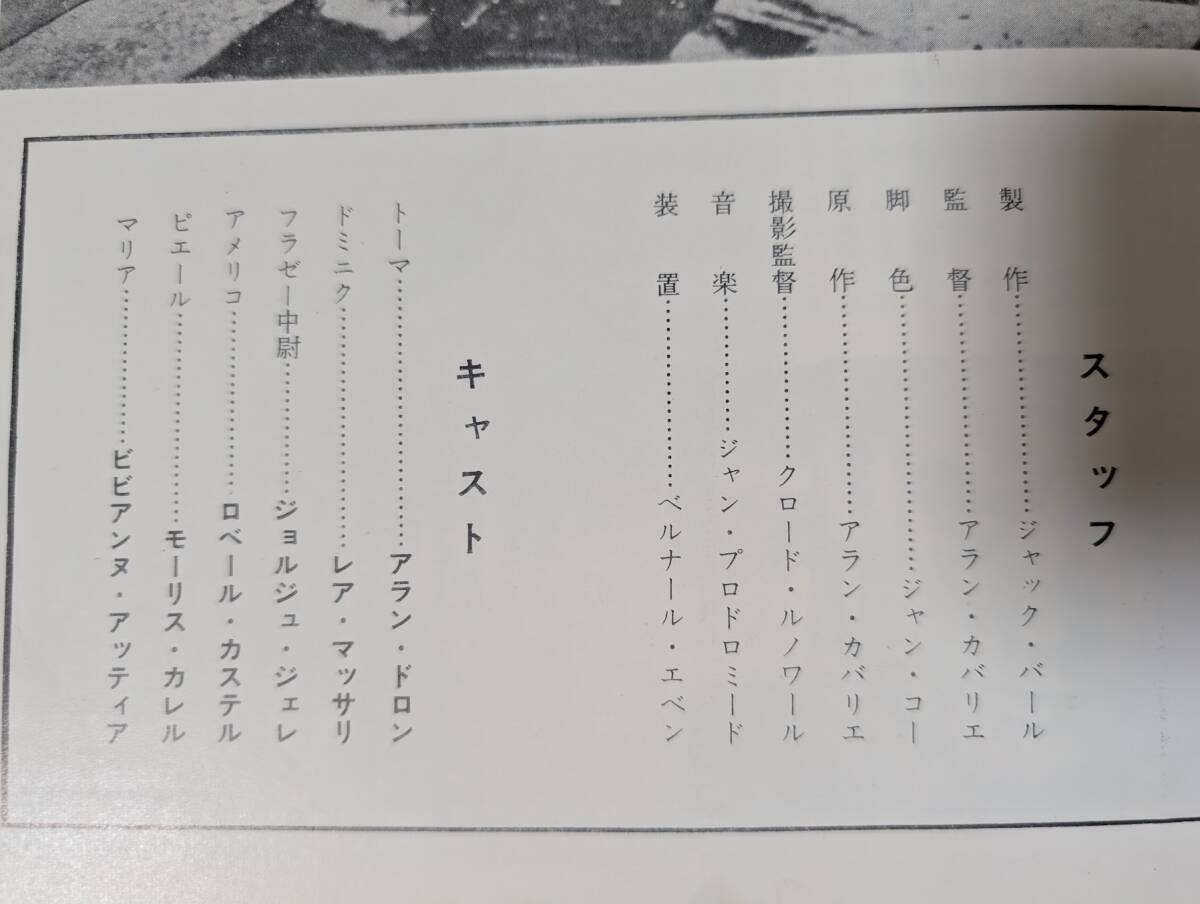 スタッフ
製作……………………ジャック・バール
監督……………………アラン・カバリエ
脚色……………………ジャン・コー
原作……………………アラン・カバリエ
撮影監督………………クロード・ルノワール
音楽……………………ジャン・プロドロミード
装置……………………ベルナール・エベン
キャスト
トーマ…………………アラン・ドロン
ドミニク………………レア・マッサリ
フラゼー中尉…………ジョルジュ・ジェレ
アメリコ………………ロベール・カステル
ピエール………………モーリス・カレル
マリア…………………ビビアンヌ・アッティア